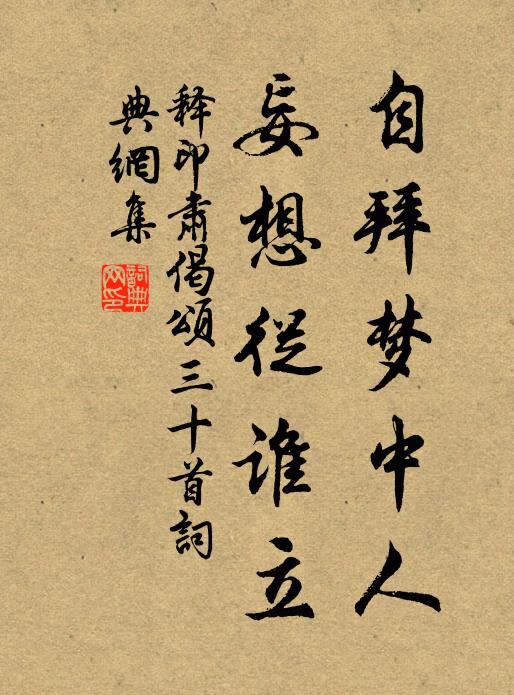 自拜梦中人
妄想從谁立
释印肃偈頌三十首詞
典網集
詞典
网印